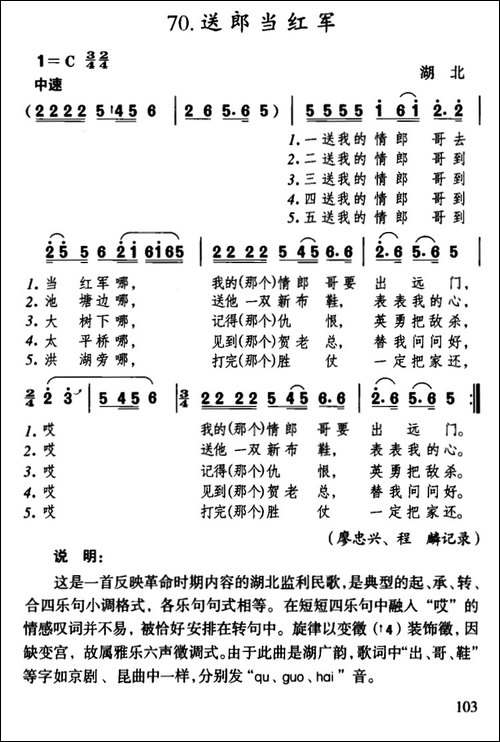 70.送郎当红军
1=C 3/4 2/4
中速
湖北
(2222 5↑45 6 | 2 6 5·6 5) | 5555 1 61 2·2 |
1.一送我的情郎 哥去
2.二送我的情郎 哥到
3.三送我的情郎 哥到
4.四送我的情郎 哥到
5.五送我的情郎 哥到
25 5 6 21 6165 | 22 22 5 45 6·6 | 2·6 5·6 5 |
1.当 红军哪, 我的(那个)情郎 哥要 出 远 门,
2.池 塘边哪, 送他 一双新布 鞋, 表表我的心,
3.大 树下哪, 记得(那个)仇 恨, 英勇把敌杀,
4.太 平桥哪, 见到(那个)贺老 总, 替我问问好,
5.洪 湖旁哪, 打完(那个)胜 仗 一定把家还,
2/4 2 3 | 5 45 6 | 3/4 22 22 5 45 6·6 | 2·6 5·6 5 :||
1.哎 我的(那个)情郎 哥要 出 远 门。
2.哎 送他 一双新布 鞋, 表表我的心。
3.哎 记得(那个)仇 恨, 英勇把敌杀。
4.哎 见到(那个)贺老 总, 替我问问好。
5.哎 打完(那个)胜 仗 一定把家还。
(廖忠兴、程 麟记录)
说 明:
这是一首反映革命时期内容的湖北监利民歌,是典型的起、承、转、
合四乐句小调格式,各乐句句式相等。在短短四乐句中融入“哎”的
情感叹词并不易,被恰好安排在转句中。旋律以变徵(↑4)装饰徵,因
缺变宫,故属雅乐六声微调式。由于此曲是湖广韵,歌词中“出、哥、鞋”
等字如京剧、昆曲中一样,分别发“qu、guo、hai”音。
103